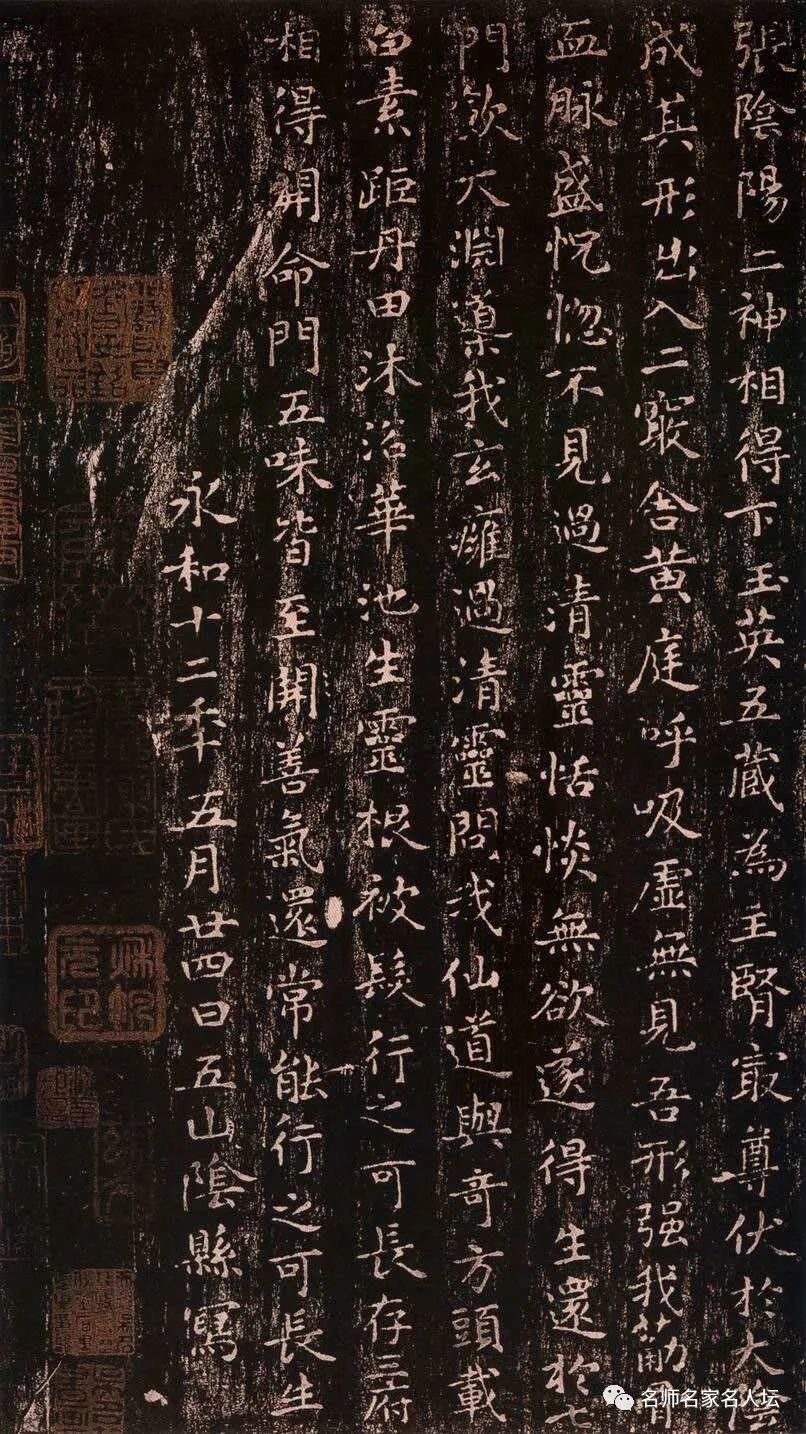 張陰陽二神相得下玉英五藏為主腎㝡尊伏於大陰
成其形出入二竅舍黄庭呼吸虛無見吾形强我筋骨
血脉盛怳惚不見過清靈恬惔無欲遂得生還於七
門飲大淵藻我玄癰過清靈問我仙道與奇方頭載
白素距丹田沐浴華池生靈根被髮行之可長存三府
相得開命門五味皆至開善氣還常能行之可長生
永和十二年五月廿四日五山陰縣寫
名师名家名人坛